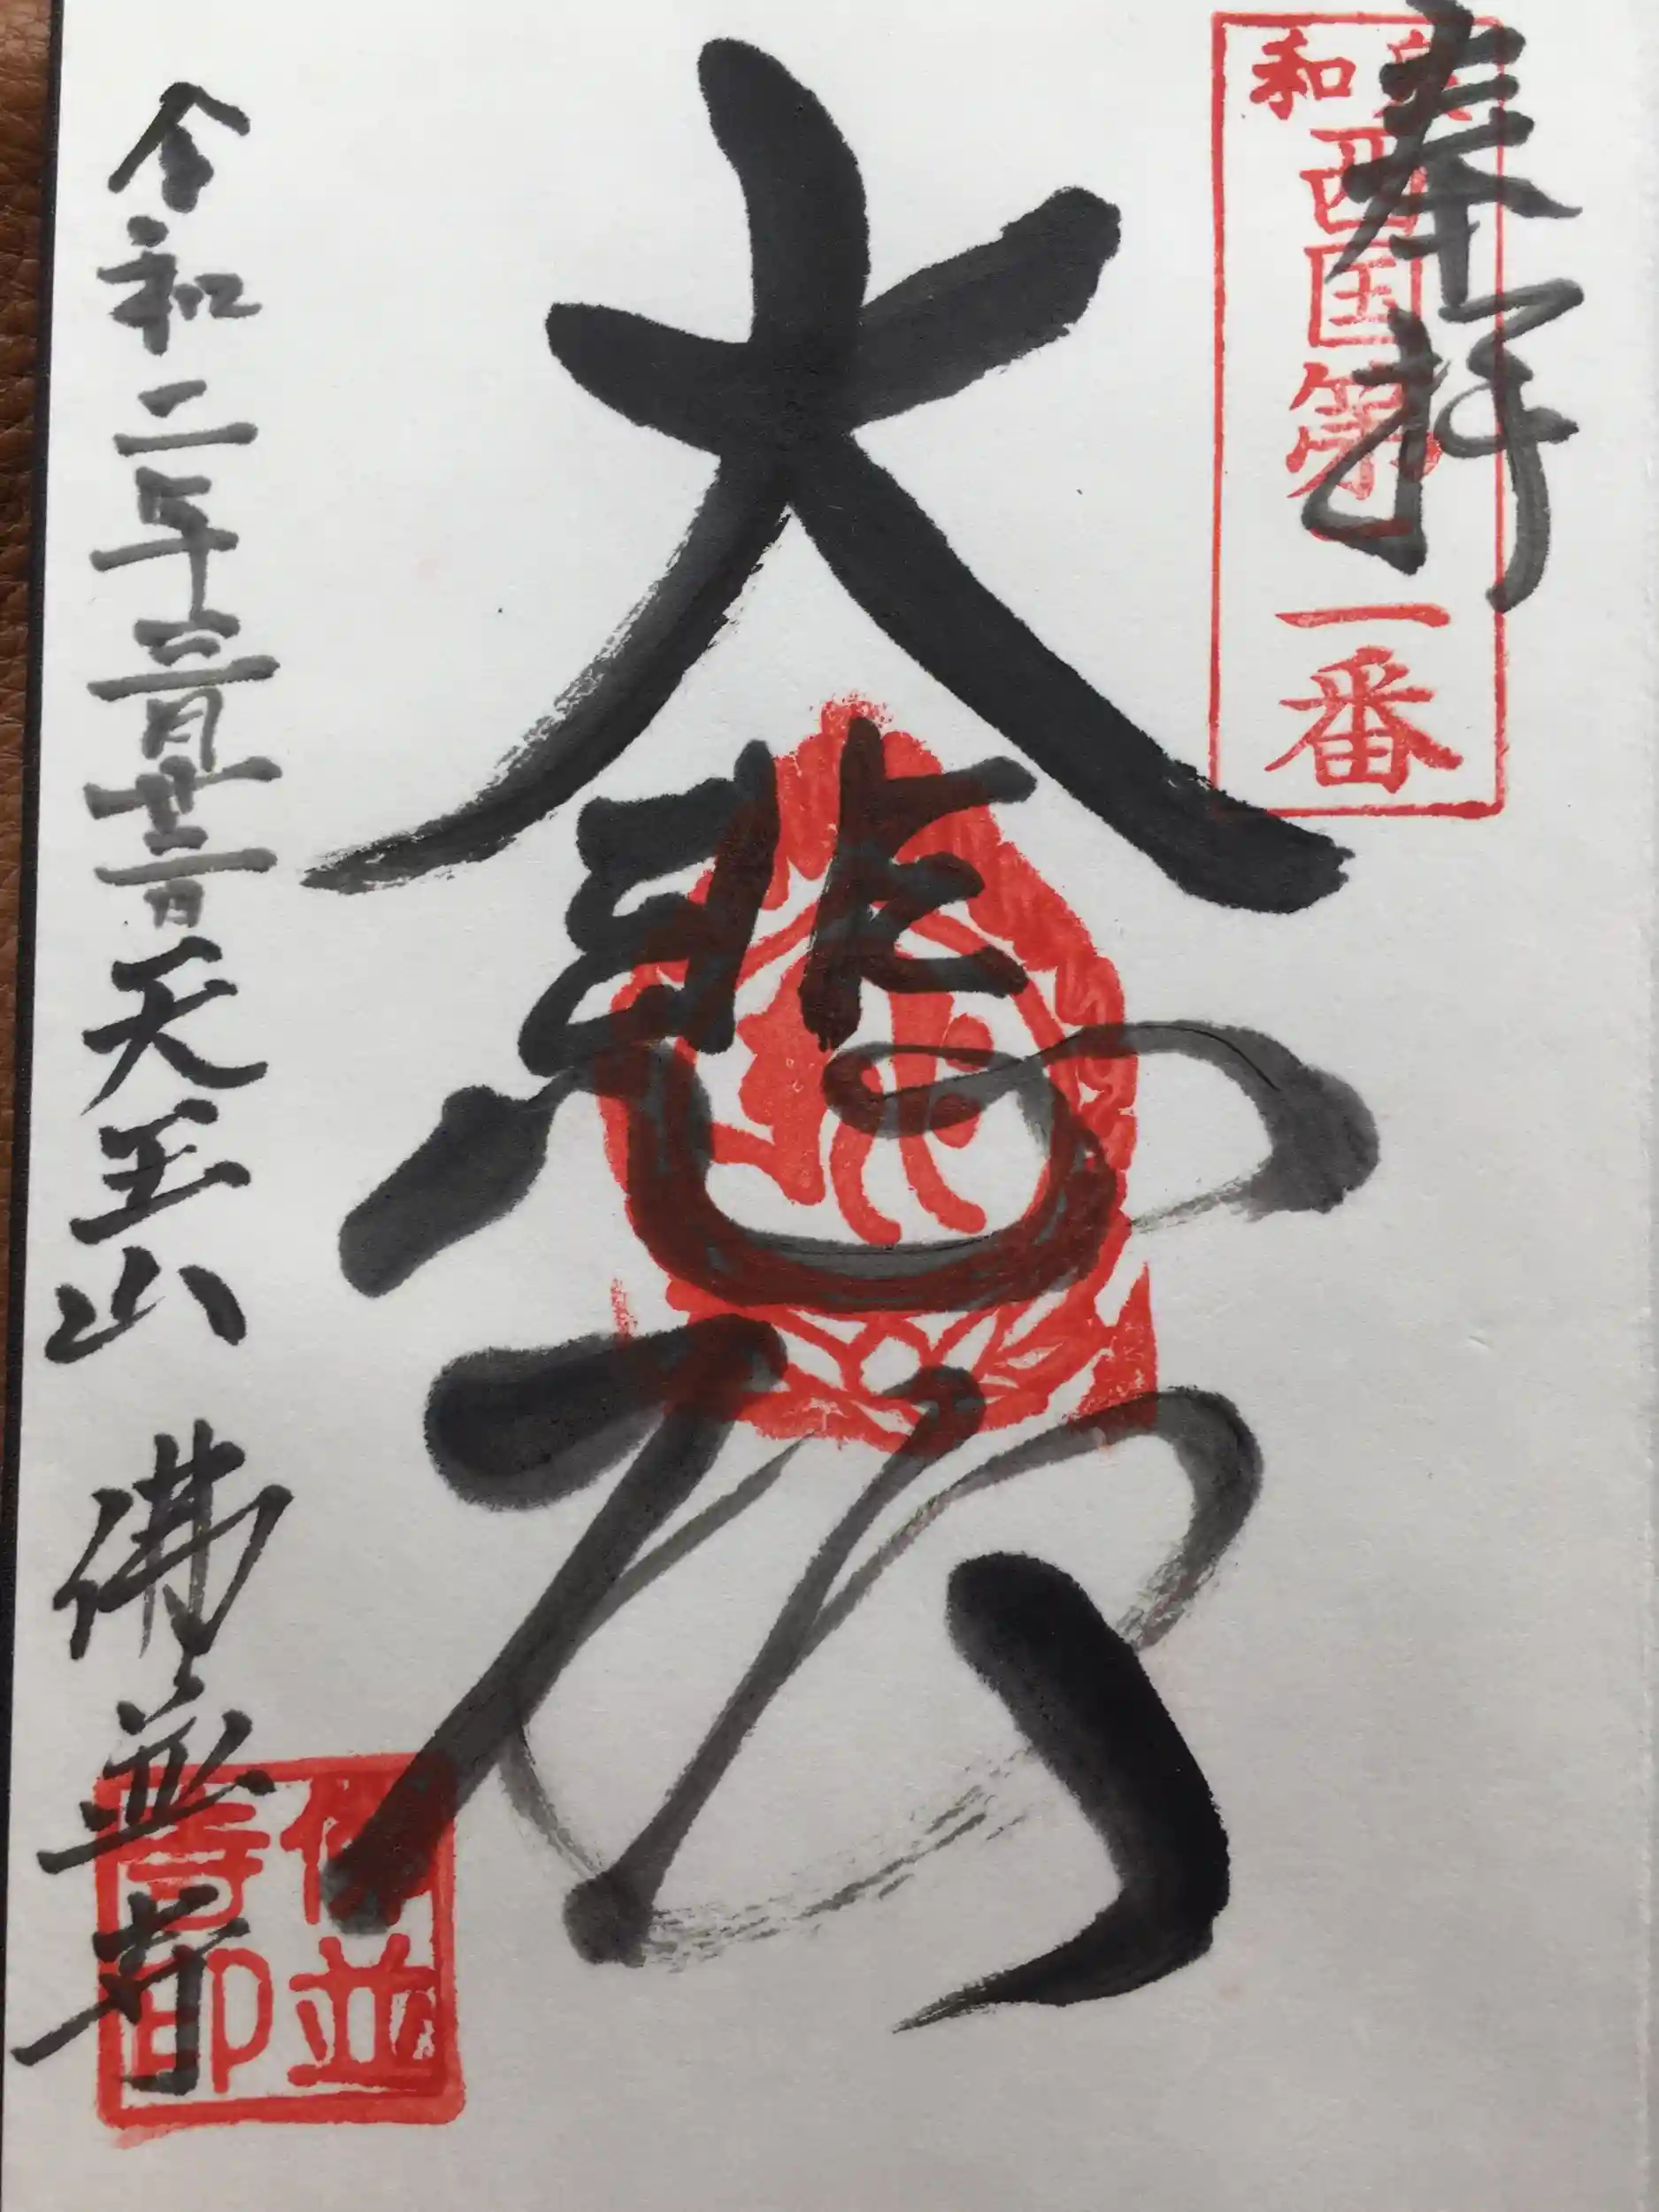 奉拝
和泉
西国第一番
大悲殿
令和二年三月廿二日 天王山 佛並寺
佛並
寺印